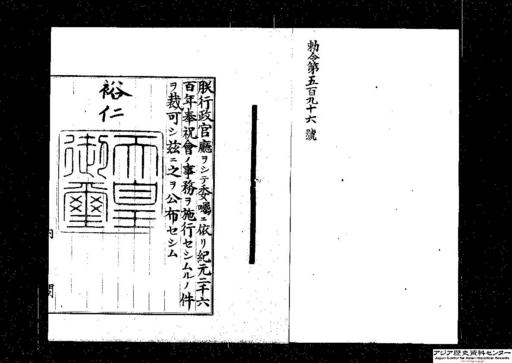 勅令第五百九十六號
朕行政官廳ヲシテ委囑ニ依リ紀元二千六
百年奉祝會ノ事務ヲ施行セシムルノ件
ヲ裁可シ玆ニ之ヲ公布セシム
裕仁
天皇
御璽
内閣
アジア歴史資料センター
Japan Center for Asian Historical Records